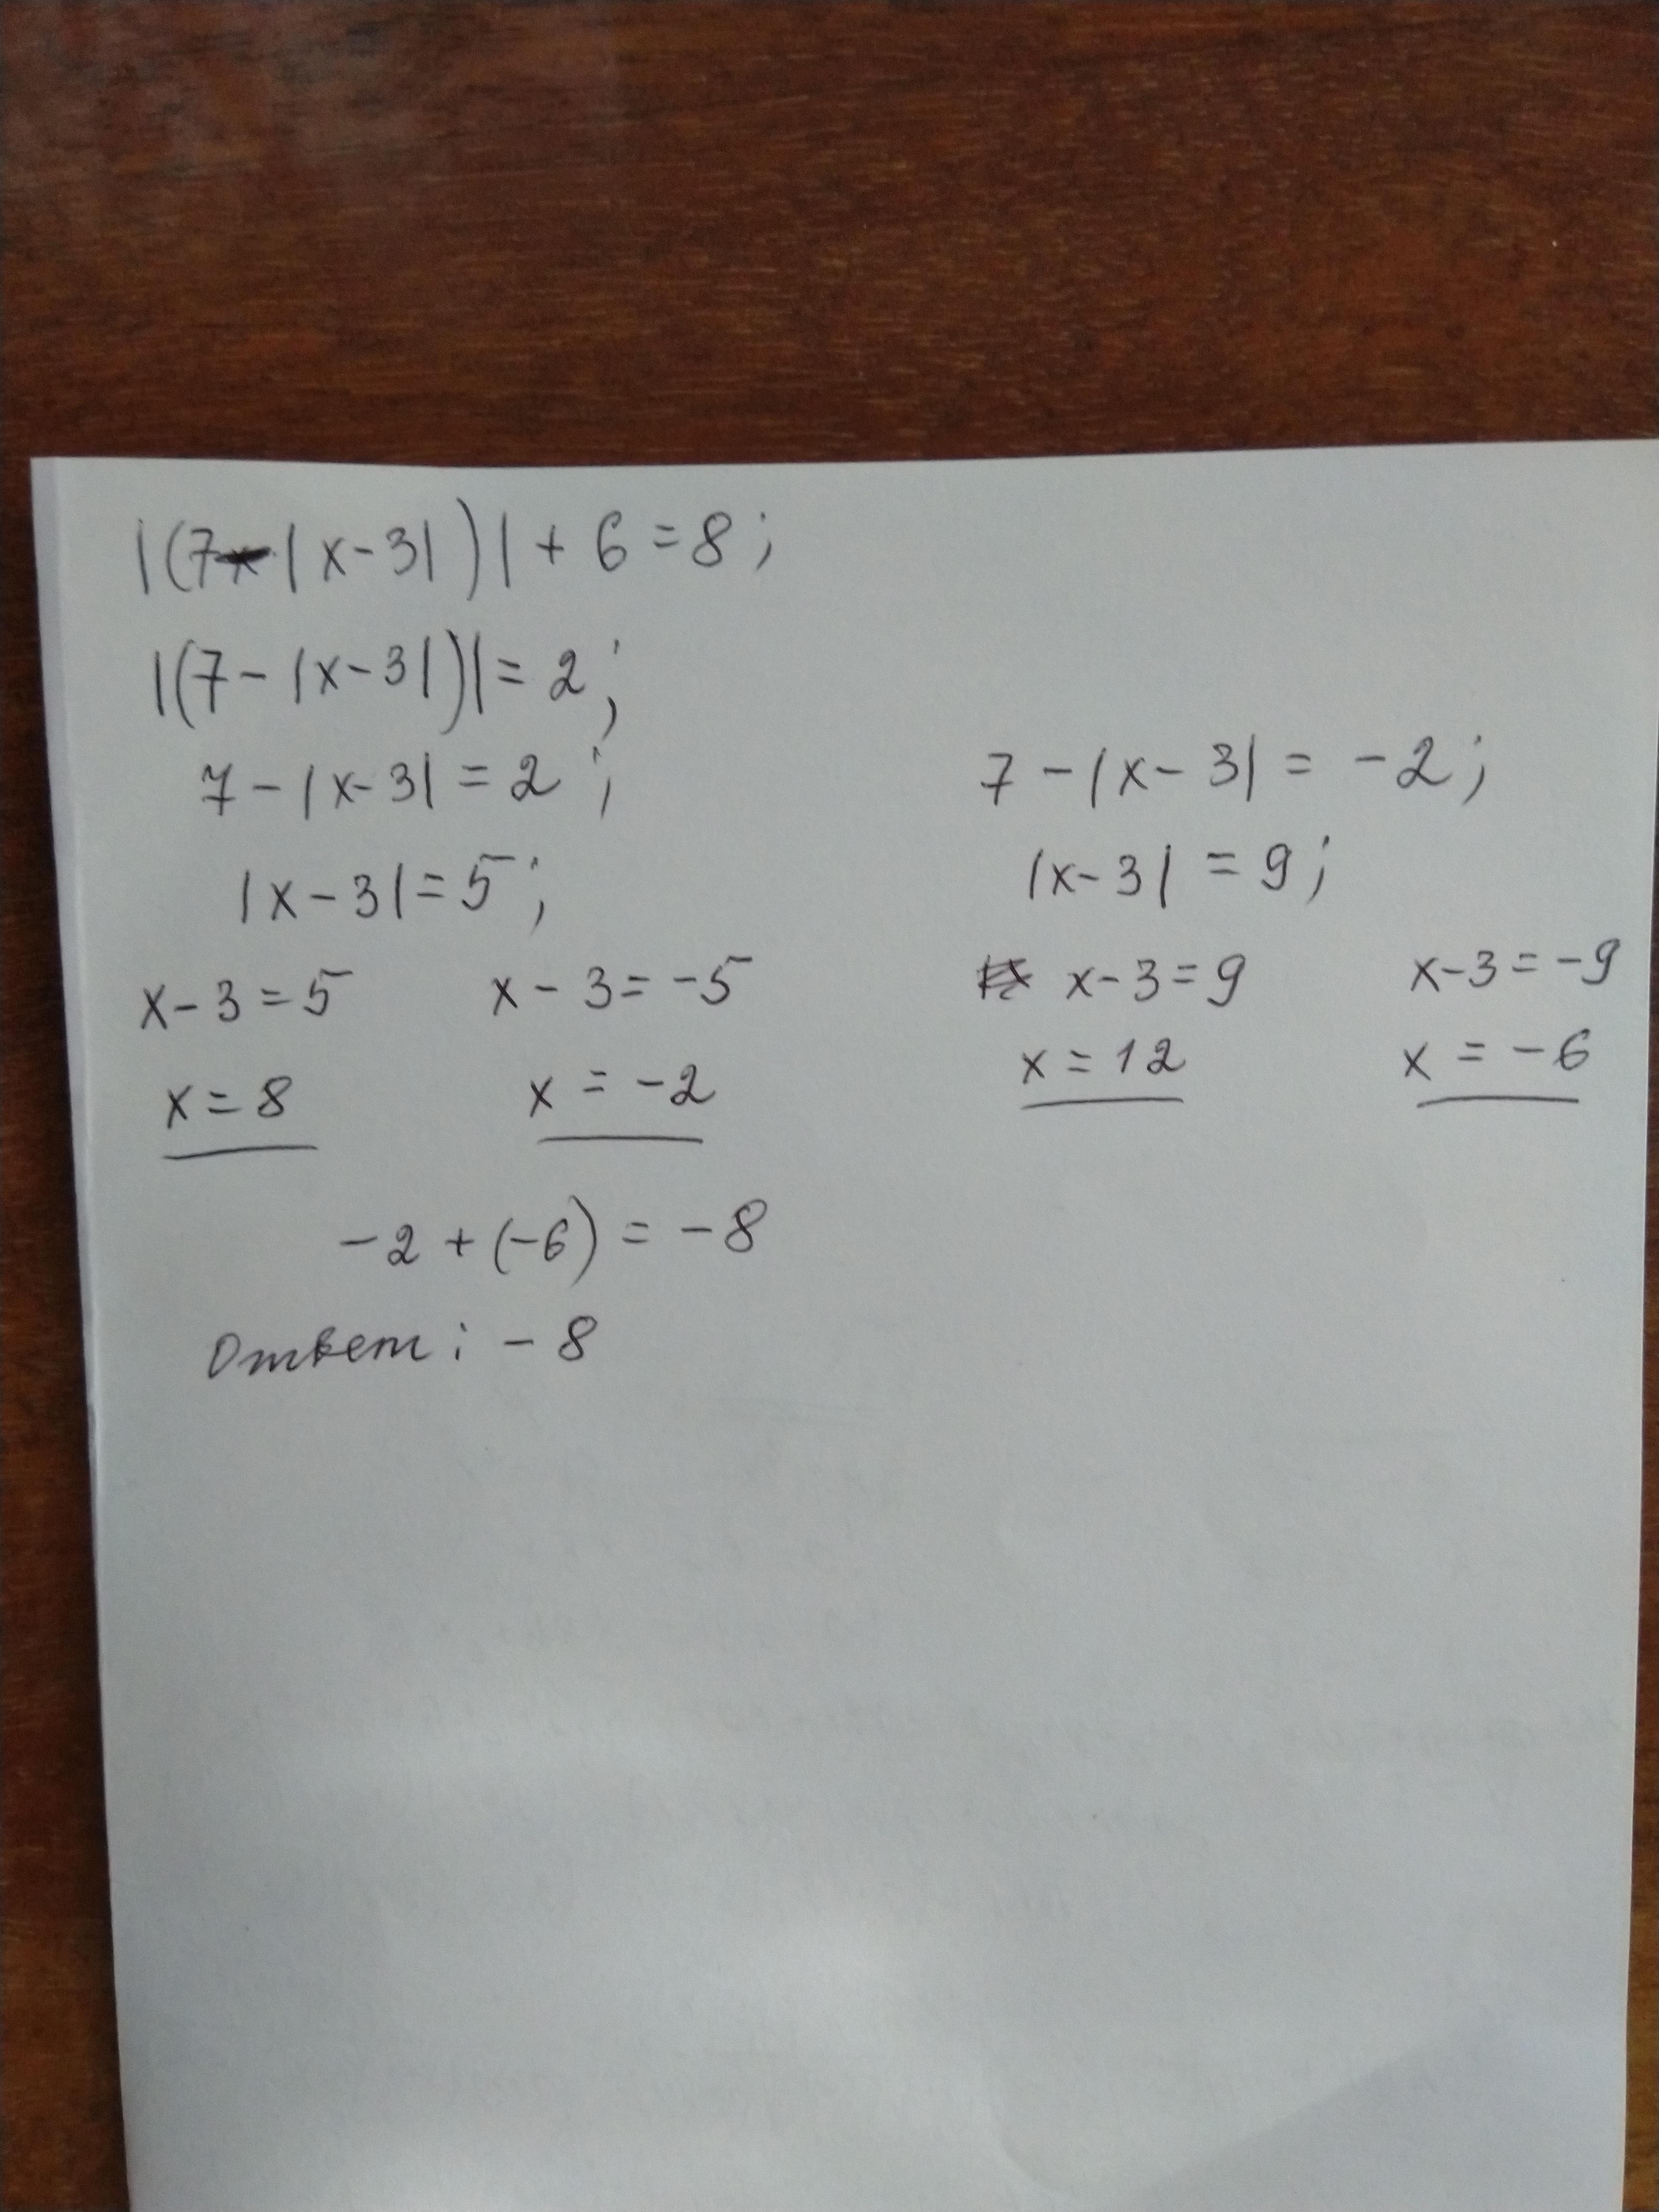 |(7-|x-3|)|+6=8;
|(7-|x-3|)|=2;
7-|x-3|=2; 7-|x-3|=-2;
|x-3|=5; |x-3|=9;
x-3=5 x-3=-5 x-3=9 x-3=-9
x=8 x=-2 x=12 x=-6
-2+(-6)=-8
Ответ: -8